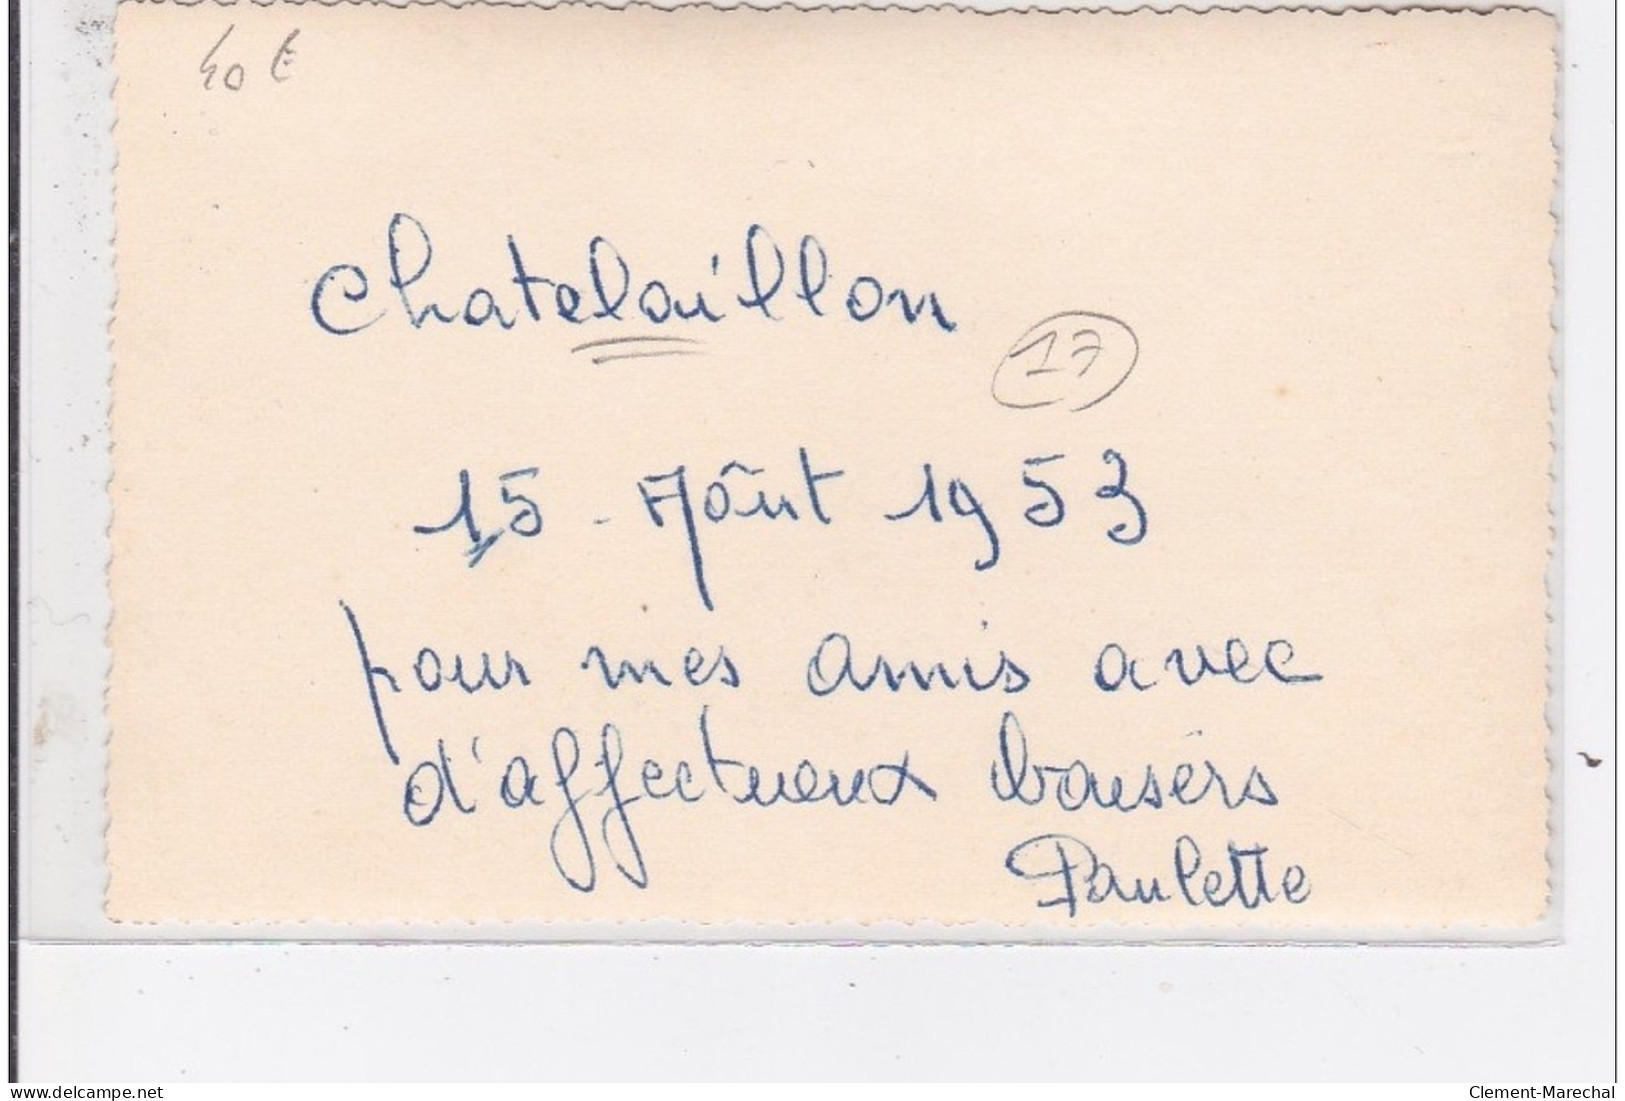 40 €
Chatelaillon
17
15 - Aôut 1953
pour mes amis avec
d'affectueux baisers
Paulette
delcampe.net
Clement-Marechal